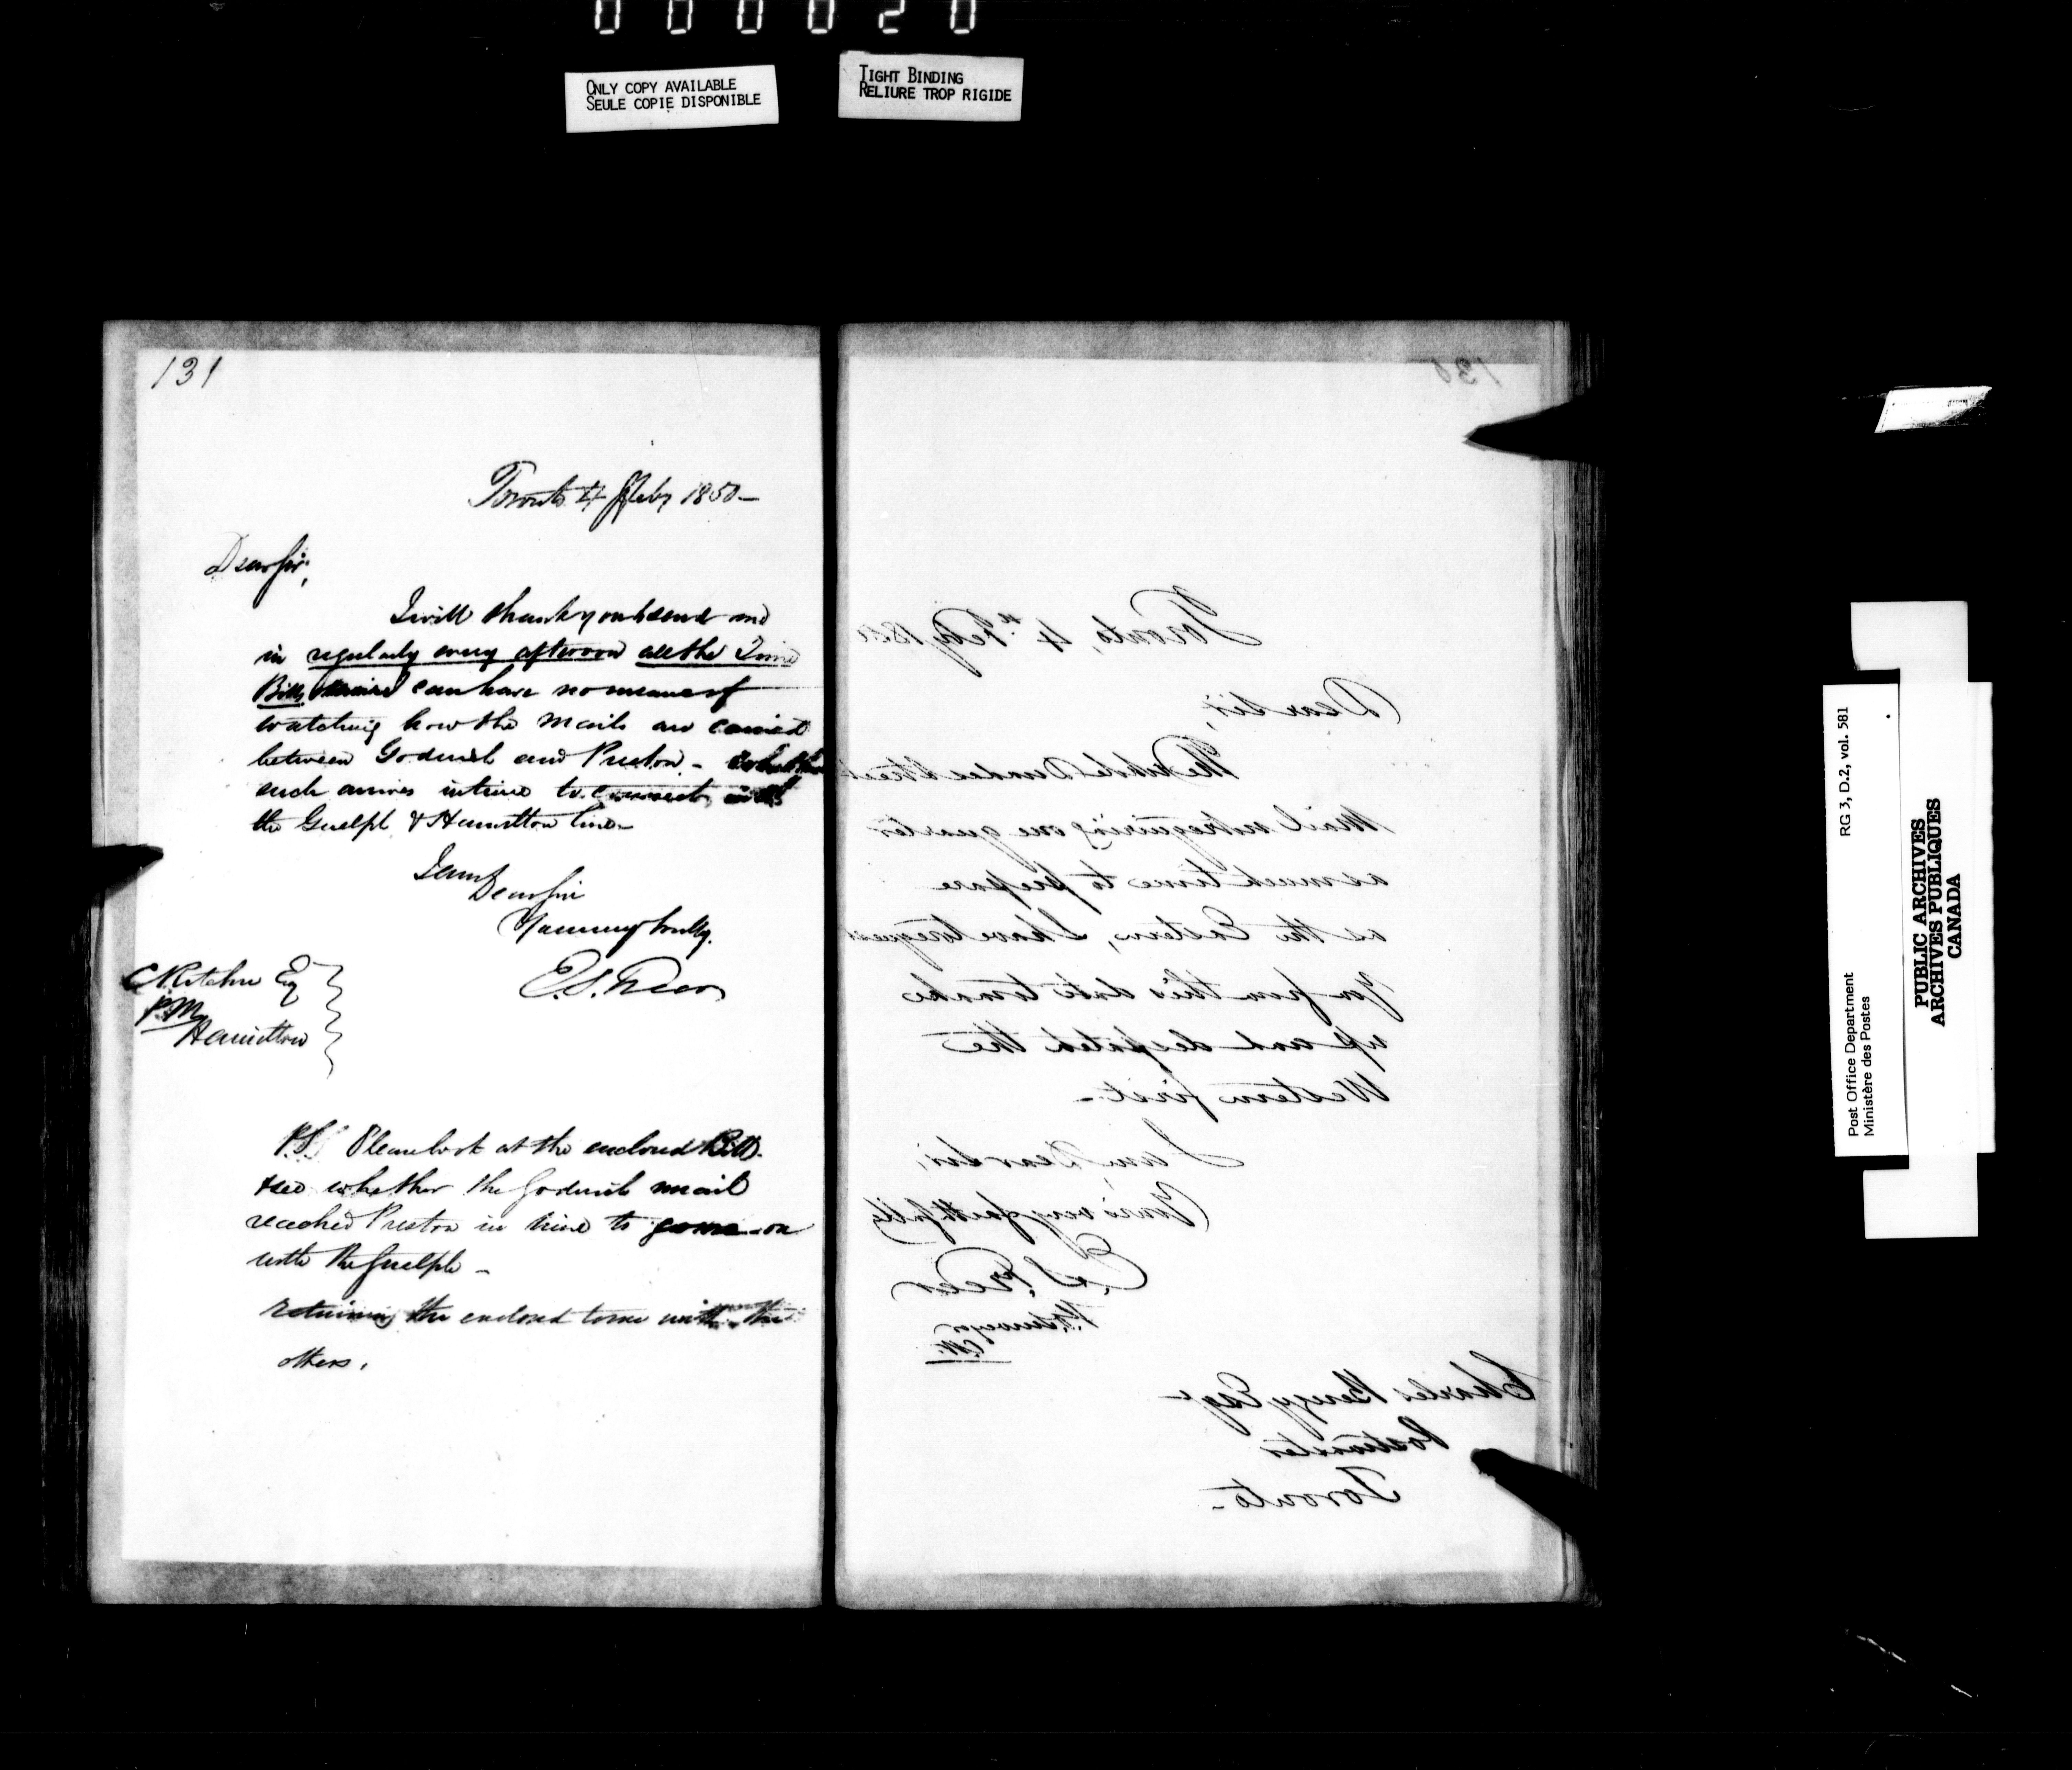 000020
ONLY COPY AVAILABLE
SEULE COPIE DISPONIBLE
TIGHT BINDING
RELIURE TROP RIGIDE
131
Toronto 4 Feby 1850 —
Dear Sir,
I will thank you to send me
in regularly every afternoon all the Time
Bills can have no means of
watching how the mails are carried
between Goderich and Preston - whether
each arrives in time to connect with
the Guelph & Hamilton line -
I am
Dear Sir
Yours very truly
E. S. Freer
E Ritchie Esq
P.M.
Hamilton
P.S. Please look at the enclosed Bill
& see whether the Goderich mail
reached Preston in time to come on
with the Guelph -
returning the enclosed to me with the
others.
130
Toronto, 4th Feby 1850
Dear Sir,
The Dundas Street
Mail not requiring one quarter
as much time to prepare
as the Eastern, I have to request
you from this date to make
up and despatch the
Western first -
I am, Dear Sir,
Yours very faithfully
E. S. Freer
P.O. Surveyor
C.W.
Charles Berczy Esqr
Postmaster
Toronto -
RG 3, D.2, vol. 581
Post Office Department
Ministère des Postes
PUBLIC ARCHIVES
ARCHIVES PUBLIQUES
CANADA